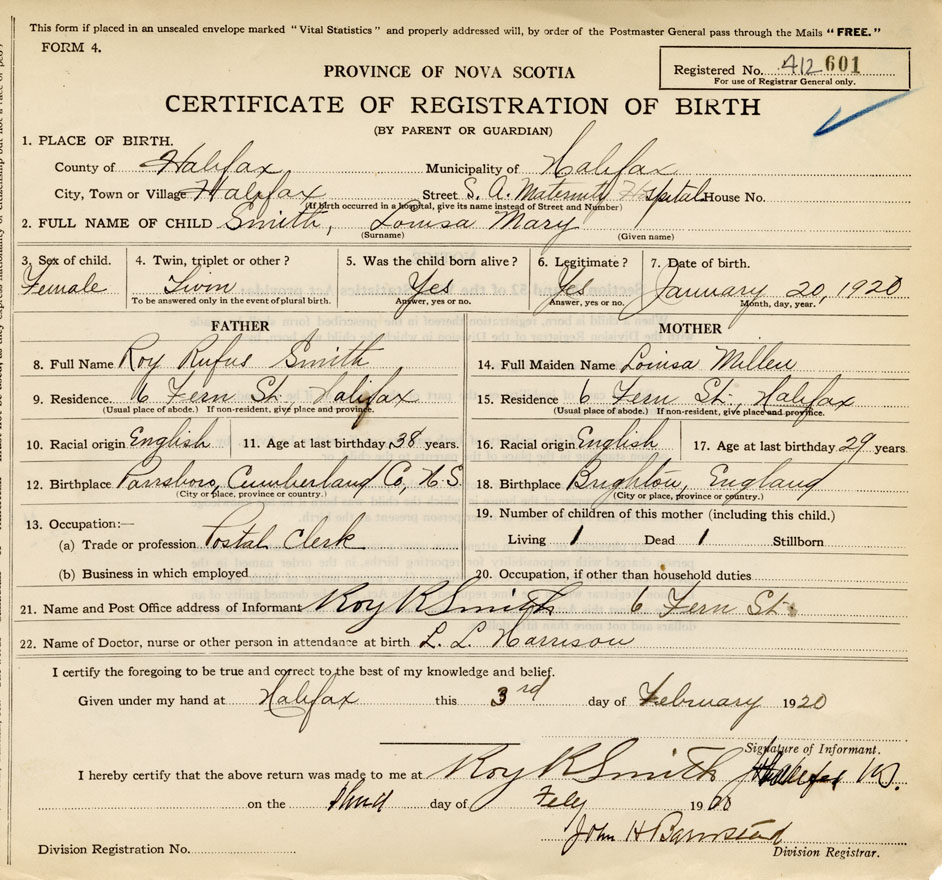 This form if placed in an unsealed envelope marked "Vital Statistics" and properly addressed will, by order of the Postmaster General pass through the Mails "FREE."
FORM 4.
PROVINCE OF NOVA SCOTIA
Registered No. 412 601
For use of Registrar General only.
CERTIFICATE OF REGISTRATION OF BIRTH
(BY PARENT OR GUARDIAN)
1. PLACE OF BIRTH.
County of Halifax Municipality of Halifax
City, Town or Village Halifax Street S. A. Maternity Hospital House No.
(If birth occurred in a hospital, give its name instead of Street and Number)
2. FULL NAME OF CHILD Smith, Louisa Mary
(Surname) (Given name)
3. Sex of child. 4. Twin, triplet or other? 5. Was the child born alive? 6. Legitimate? 7. Date of birth.
Female Twin Yes Yes January 20, 1920
To be answered only in the event of plural birth. Answer, yes or no. Answer, yes or no. Month, day, year.
FATHER MOTHER
8. Full Name Roy Rufus Smith 14. Full Maiden Name Louisa Millen
9. Residence. 6 Fern St. Halifax 15. Residence 6 Fern St., Halifax
(Usual place of abode.) If non-resident, give place and province. (Usual place of abode.) If non-resident, give place and province.
10. Racial origin English 11. Age at last birthday 38 years. 16. Racial origin English 17. Age at last birthday 29 years
12. Birthplace Parrsboro, Cumberland Co, N.S. 18. Birthplace Brighton, England
(City or place, province or country.) (City or place, province or country.)
13. Occupation:— 19. Number of children of this mother (including this child.)
(a) Trade or profession Postal Clerk Living 1 Dead 1 Stillborn
(b) Business in which employed 20. Occupation, if other than household duties
21. Name and Post Office address of Informant Roy R Smith 6 Fern St.
22. Name of Doctor, nurse or other person in attendance at birth L. L. Harrison
I certify the foregoing to be true and correct to the best of my knowledge and belief.
Given under my hand at Halifax this 3rd day of February 1920
Signature of Informant.
I hereby certify that the above return was made to me at Roy R Smith Halifax
on the third day of Feby 1920
John H Barnstead
Division Registration No. Division Registrar.